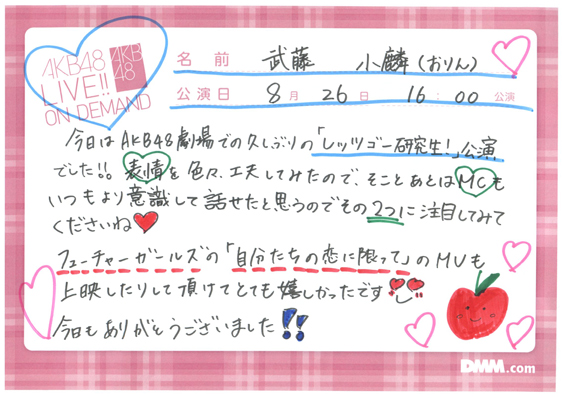 AKB48
LIVE!!
ON DEMAND
AKB
48
名前 武藤 小麟(おりん)
公演日 8月 26日 16:00 公演
今日はAKB48劇場での久しぶりの「レッツゴー研究生!」公演
でした!! 表情を色々、工夫してみたので、そことあとはMCも
いつもより意識して話せたと思うのでその2つに注目してみて
くださいね
フューチャーガールズの「自分たちの恋に限って」のMVも
上映したりして頂けてとても嬉しかったです
今日もありがとうございました!!
DMM.com